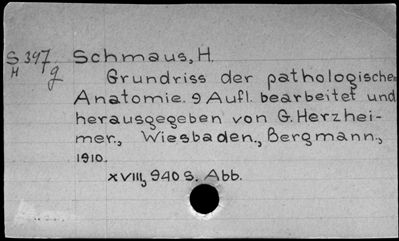 S 397 Schmaus, H.
H g
Grundriss der pathologischen
Anatomie. 9 Aufl. bearbeitet und
herausgegeben von G. Herzhei-
mer., Wiesbaden., Bergmann.,
1910.
XVIII, 940 S. Abb.